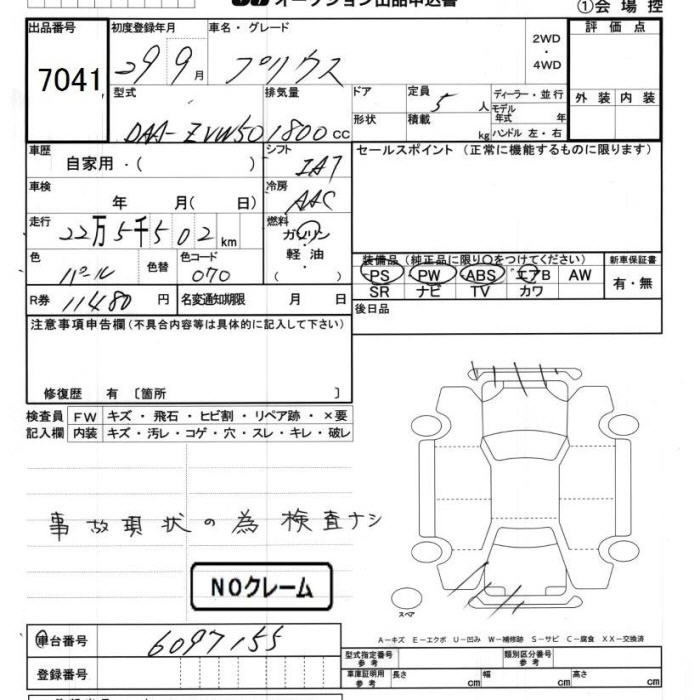 オークション出品申込書
①会場控
出品番号
7041
初度登録年月
29 9月
車名・グレード
プリウス
2WD
・
4WD
評価点
外装 内装
型式
DAA-ZVW50
排気量
1800cc
ドア
形状
定員
5人
積載
kg
ディーラー・並行
モデル年式 年
ハンドル 左・右
車歴
自家用・( )
シフト
IAT
セールスポイント (正常に機能するものに限ります)
車検
年 月( 日)
冷房
AAC
走行
22万5千502km
燃料
ガソリン
軽油
( )
色
パール
色替
色コード
070
装備品 (純正品に限り○をつけてください)
PS PW ABS エアB AW
SR ナビ TV カワ
新車保証書
有・無
R券 11480円
名変通知期限 月 日
後日品
注意事項申告欄(不具合内容等は具体的に記入して下さい)
修復歴 有 〔箇所 〕
検査員 FW キズ・飛石・ヒビ割・リペア跡・×要
記入欄 内装 キズ・汚レ・コゲ・穴・スレ・キレ・破レ
事故現状の為検査ナシ
NOクレーム
スペア
A-キズ E-エクボ U-凹み W-補修跡 S-サビ C-腐食 XX-交換済
車台番号
6097155
登録番号
型式指定番号
参考
類別区分番号
参考
車庫証明用
参考
長さ cm 幅 cm 高さ cm